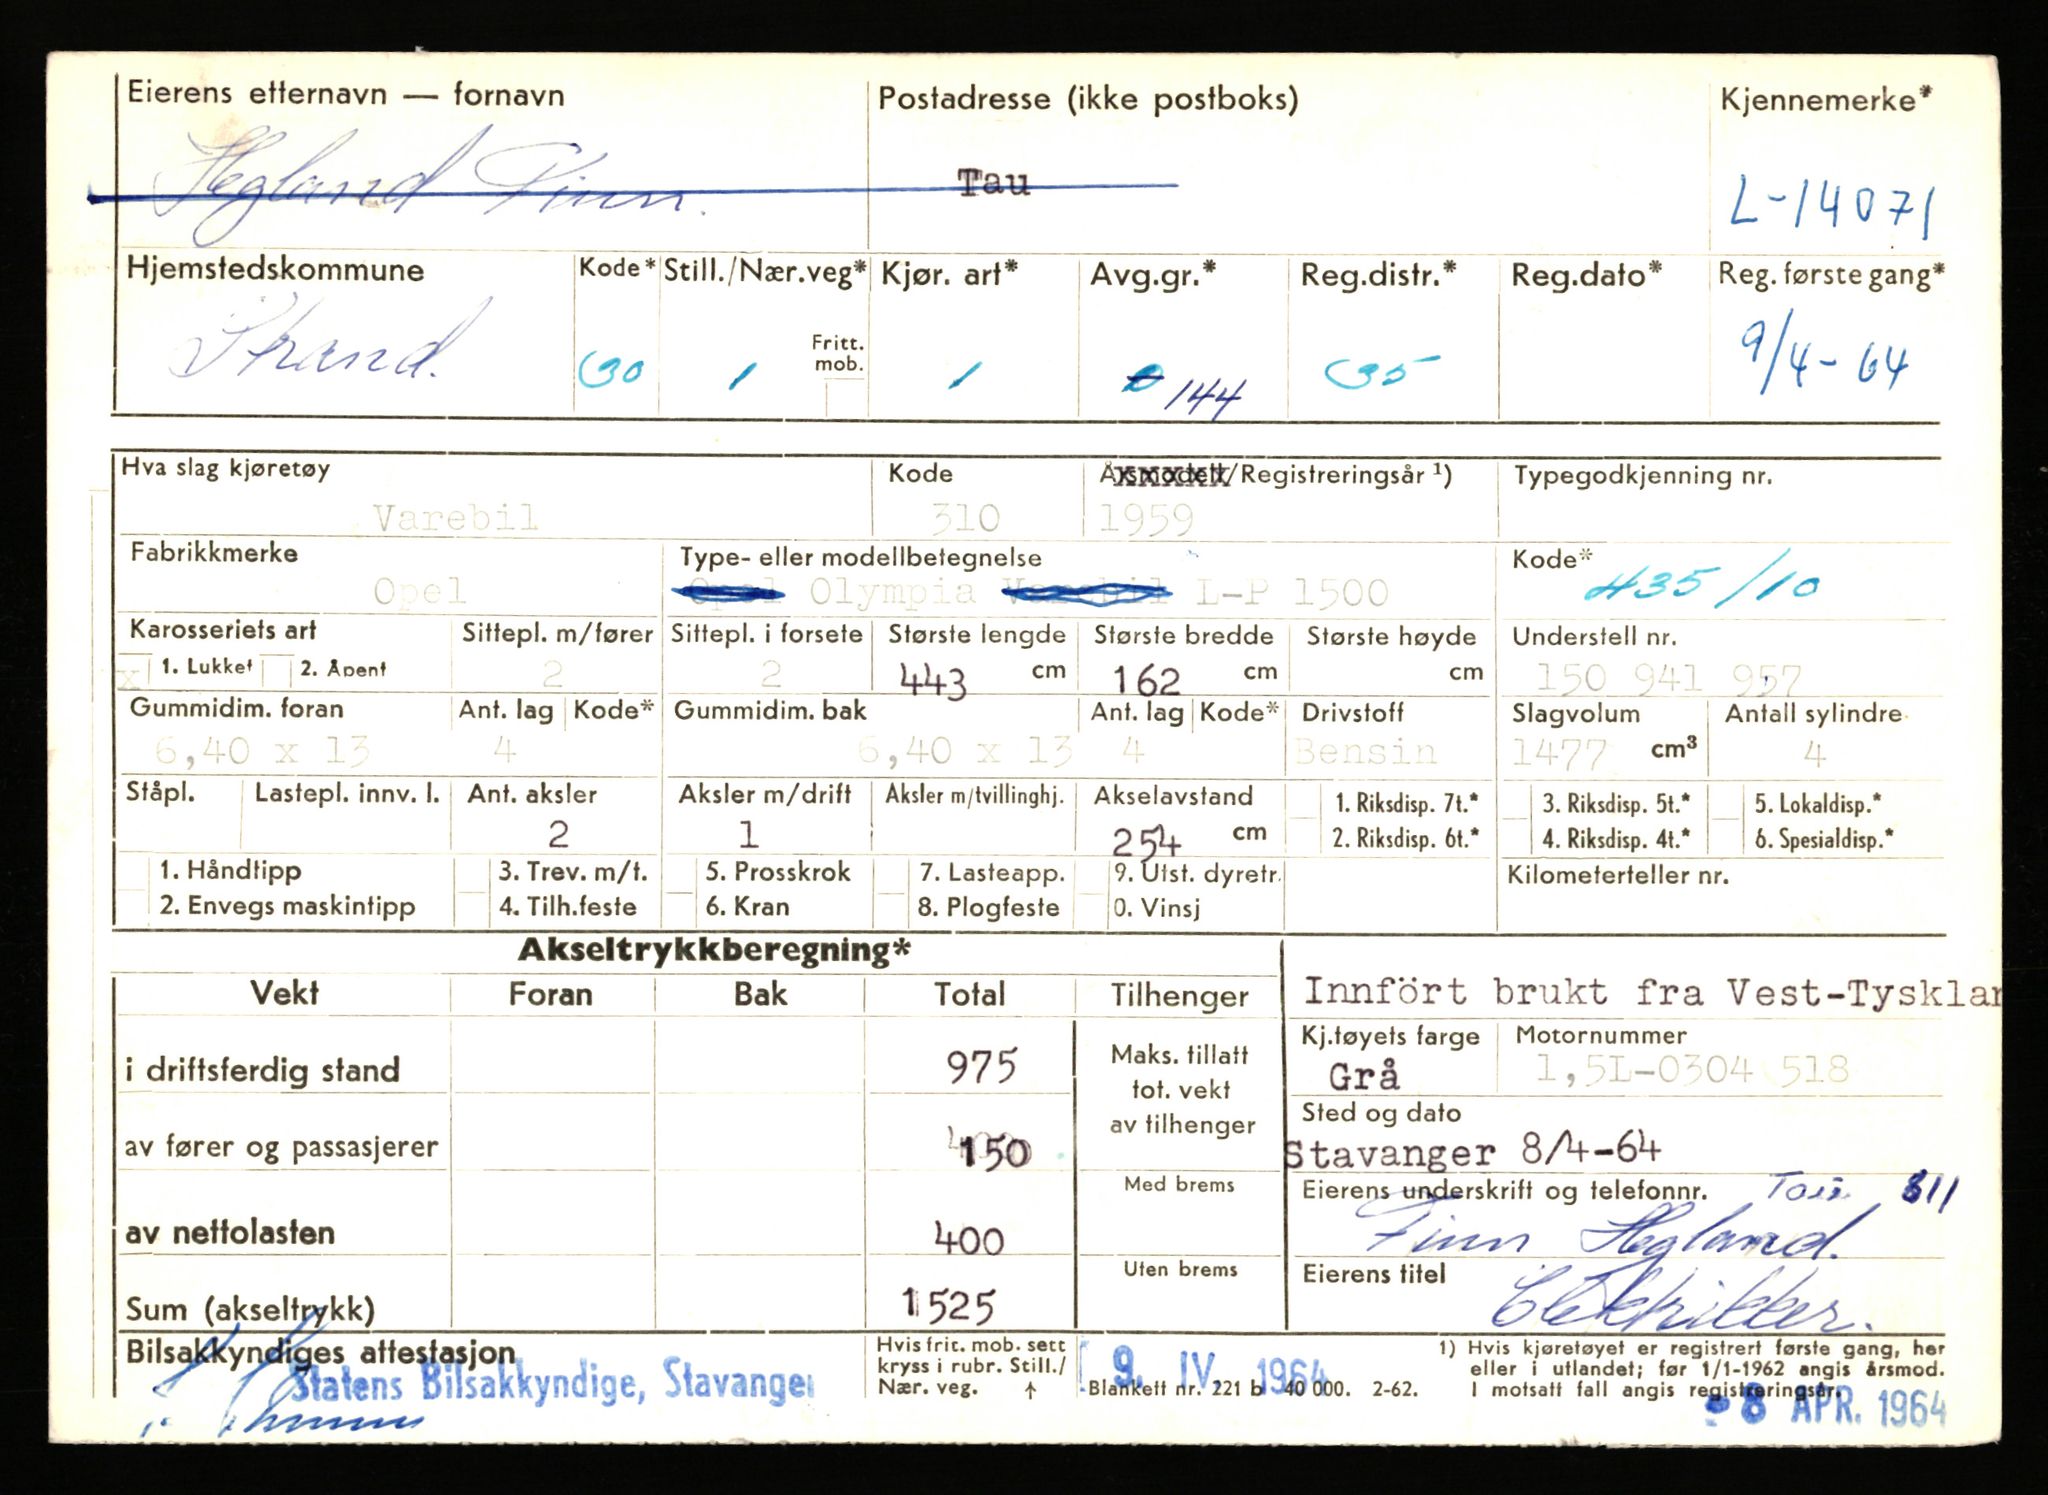 Eierens etternavn — fornavn Postadresse (ikke postboks) Kjennemerke*
Hegland Finn. Tau L-14071
Hjemstedskommune Kode* Still./Nær.veg* Kjør. art* Avg.gr.* Reg.distr.* Reg.dato* Reg. første gang*
Strand. 30 1 Fritt. mob. 1 0 144 35 9/4-64
Hva slag kjøretøy Kode Årsmodell/Registreringsår ¹) Typegodkjenning nr.
Varebil 310 1959
Fabrikkmerke Type- eller modellbetegnelse Kode*
Opel Opel Olympia Varebil L-P 1500 435/10
Karosseriets art Sittepl. m/fører Sittepl. i forsete Største lengde Største bredde Største høyde Understell nr.
x 1. Lukket 2. Åpent 2 2 443 cm 162 cm cm 150 941 957
Gummidim. foran Ant. lag Kode* Gummidim. bak Ant. lag Kode* Drivstoff Slagvolum Antall sylindre
6,40 x 13 4 6,40 x 13 4 Bensin 1477 cm³ 4
Ståpl. Lastepl. innv. l. Ant. aksler Aksler m/drift Aksler m/tvillinghj. Akselavstand 1. Riksdisp. 7t.* 3. Riksdisp. 5t.* 5. Lokaldisp.*
2 1 254 cm 2. Riksdisp. 6t.* 4. Riksdisp. 4t.* 6. Spesialdisp.*
1. Håndtipp 3. Trev. m/t. 5. Prosskrok 7. Lasteapp. 9. Utst. dyretr. Kilometerteller nr.
2. Envegs maskintipp 4. Tilh.feste 6. Kran 8. Plogfeste 0. Vinsj
Akseltrykkberegning*
Vekt Foran Bak Total Tilhenger Innfört brukt fra Vest-Tysklan
Kj.tøyets farge Motornummer
i driftsferdig stand 975 Maks. tillatt tot. vekt av tilhenger Grå 1,5L-0304 518
Sted og dato
av fører og passasjerer 150 Stavanger 8/4-64
Med brems Eierens underskrift og telefonnr. Tau 811
av nettolasten 400 Finn Hegland.
Uten brems Eierens titel
Sum (akseltrykk) 1525 Elektriker.
Bilsakkyndiges attestasjon Hvis fric. mob. sett kryss i rubr. Still./ Nær. veg. ↑ 9. IV. 1964
Statens Bilsakkyndige, Stavanger
Blankett nr. 221 b 40 000. 2-62.
1) Hvis kjøretøyet er registrert første gang, her
eller i utlandet; før 1/1-1962 angis årsmod.
I motsatt fall angis registreringsår.
- 8 APR. 1964